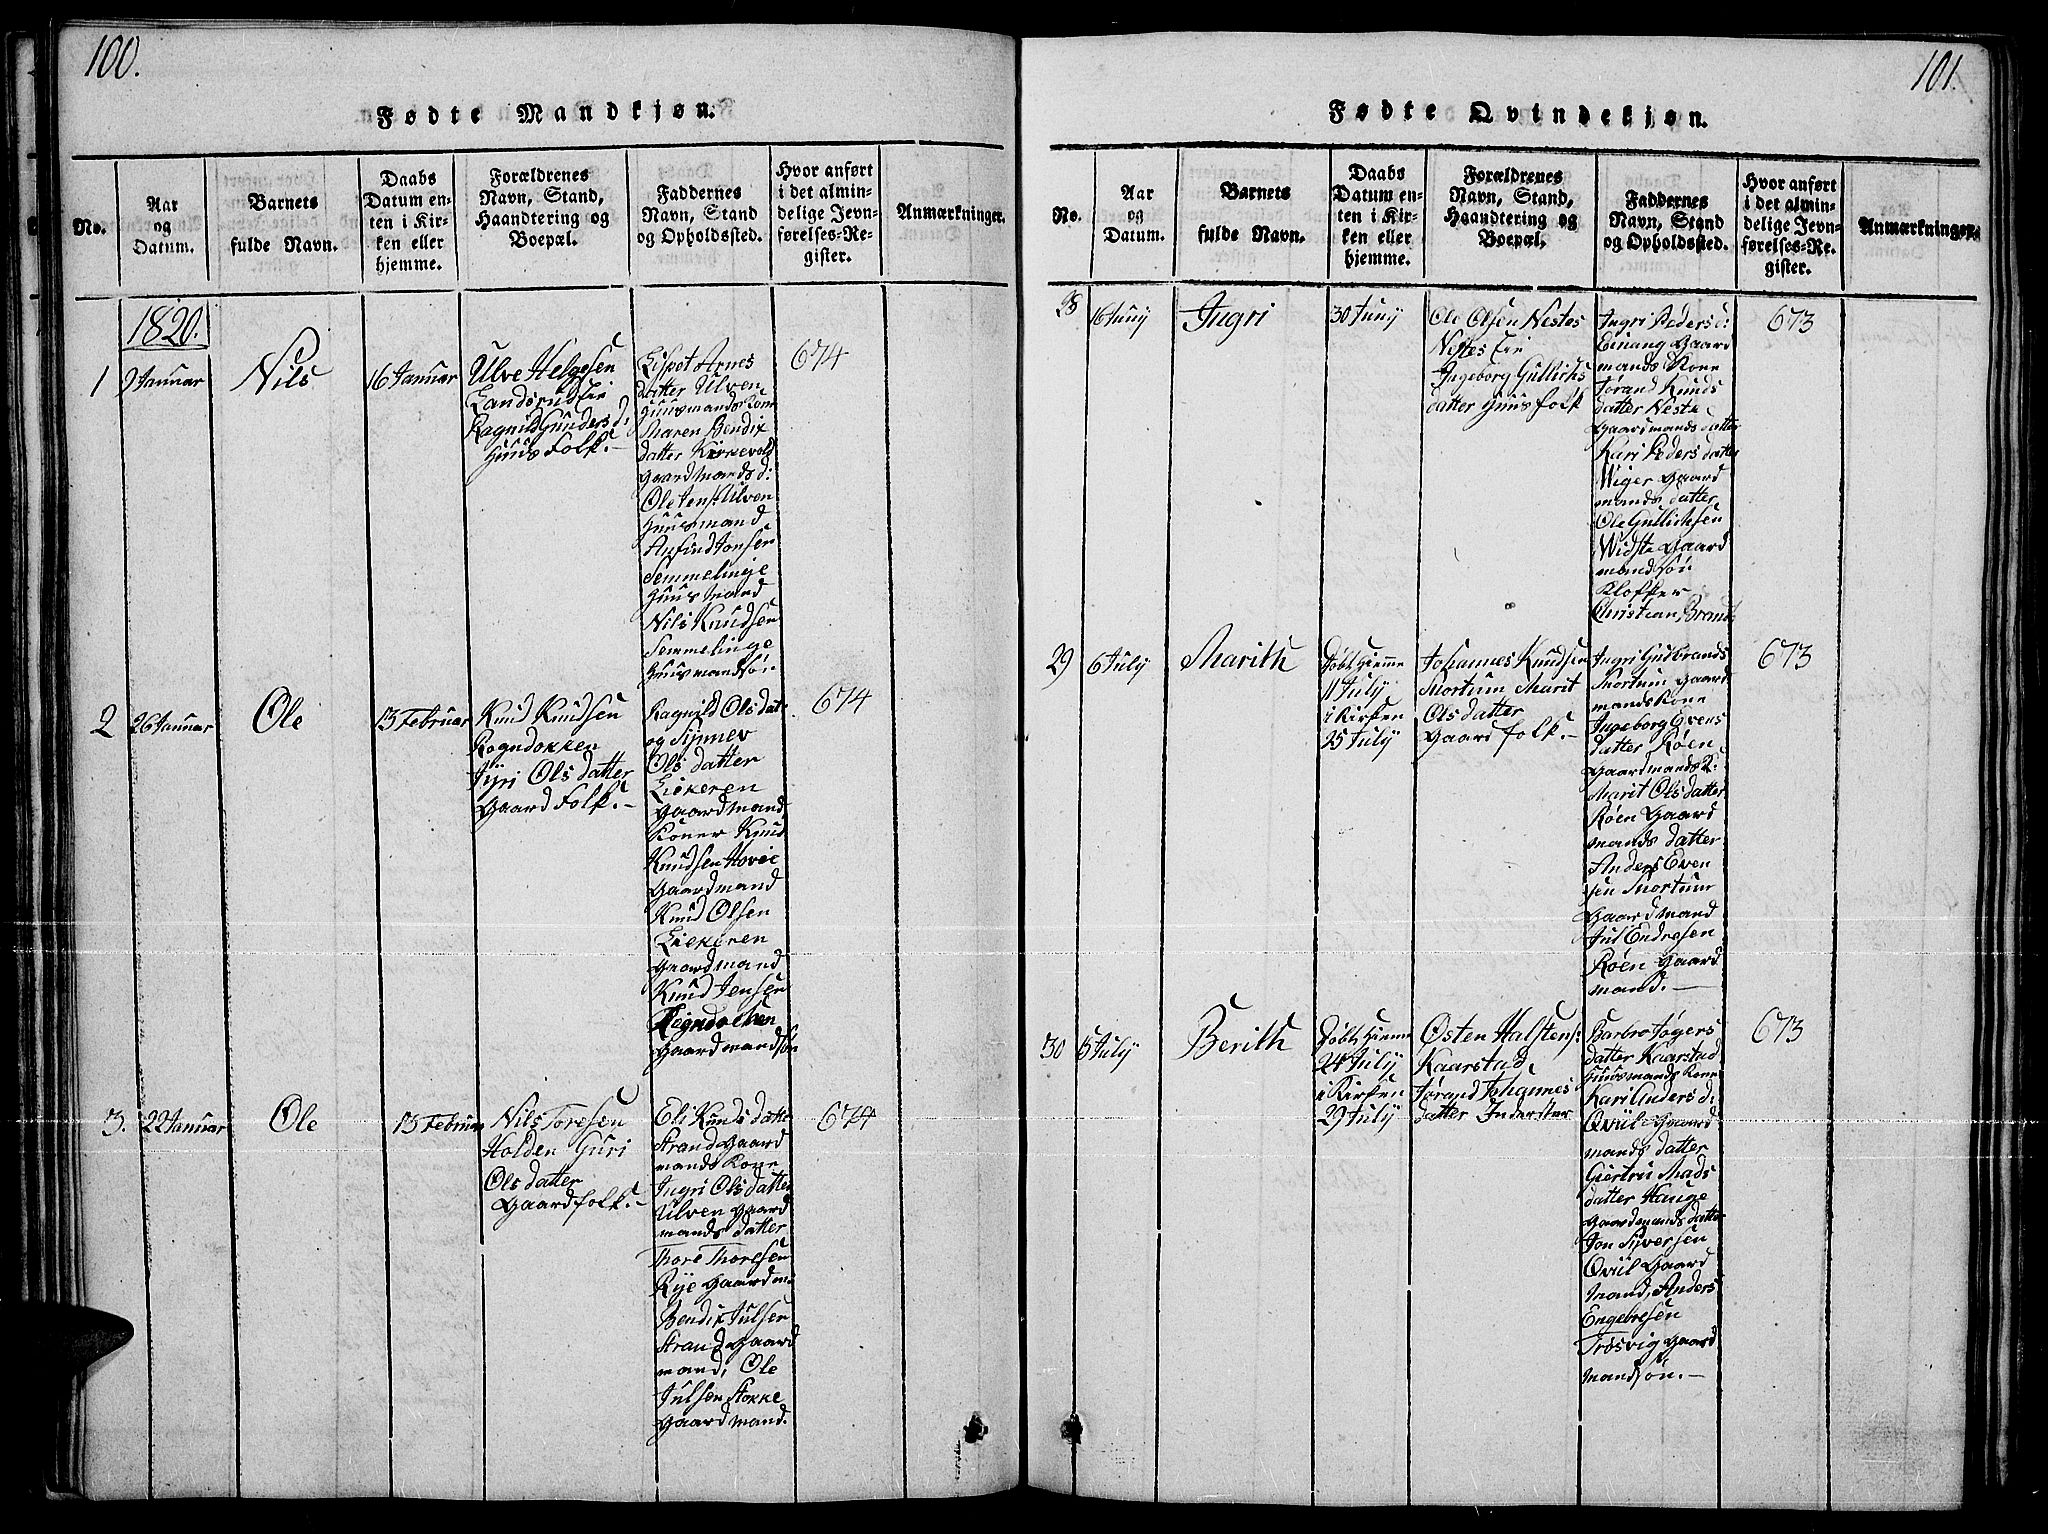 100.
Fødte Mandkjøn.
No.
Aar
og
Datum.
Barnets
fulde Navn.
Daabs
Datum en-
ten i Kir-
ken eller
hjemme.
Forældrenes
Navn, Stand,
Haandtering og
Boepæl.
Faddernes
Navn, Stand
og Opholdssted.
Hvor anført
i det almin-
delige Jevn-
førelses-Re-
gister.
Anmærkninger.
1820.
1
9 Januar
Nils
16 Januar
Ulve Helgesen
Landsrudeie
Ragnild Gunders d:
Huus Folk.-
Lispet Arnes
datter Ulven
Huusmands Kone
Maren Bendix
datter Kirkevold
Gaardmands d:
Ole Jens. Ulven
Huusmand
Anfind Jonsen
Semmelinge
Huusmand
Nils Knudsen
Semmelinge
Huusmandsø:
674
2
26 Januar
Ole
13 Februar
Knud Knudsen
Rogndokken
Jyri Olsdatter
Gaard Folk.-
Ragnild Olsdat.
og Synnev
Olsdatter
Liekeren
Gaardmand
Koner Knud
Knudsen Hovie
Gaardmand
Knud Olsen
Liekeren
Gaardmand
Knud Jensen
Rogndochen
Gaardmandsøn
674
3.
22 Januar
Ole
13 Februar
Nils Toresen
Holden Guri
Olsdatter
Gaardfolk.-
Eli Knuds datte
Strand Gaard
mands Kone
Ingri Olsdatter
Ulven Gaard
mands datter
Thore Thoresen
Rye Gaardm:
Bendix Julsen
Strand Gaard
mand, Ole
Julsen Stokke
Gaardmand.
674
101.
Fødte Qvindekjøn.
No.
Aar
og
Datum.
Barnets
fulde Navn.
Daabs
Datum en-
ten i Kir-
ken eller
hjemme.
Forældrenes
Navn, Stand,
Haandtering og
Boepæl.
Faddernes
Navn, Stand
og Opholdssted.
Hvor anført
i det almin-
delige Jevn-
førelses-Re-
gister.
Anmærkninger.
28
16 Juny
Ingri
30 Juny
Ole Olsen Nestes
Nestes Eie
Ingeborg Gullichs
datter Huusfolk
Ingri Peders d:
Einang Gaard
mands Kone
Jørand Knuds
datter Neste
Gaardmands datter
Kari Peders datter
Wiger Gaard
mands datter
Ole Gullichsen
Widste Gaard
mandsøn
Klokker
Christian Brandt
673
29
6 July
Marith
Døbt Hiemme
11 July
i Kirken
25 July
Johannes Knudsen
Mortum Marit
Olsdatter
Gaardfolk.-
Ingri Gulbrands
Mortum Gaard
mands Kone
Ingeborg Evens
datter Røen
Gaardmands K:
Marit Olsdatter
Røen Gaard
mands datter
Anders Even
sen Mortum
Gaardmand
Jul Endresen
Røen Gaard
mand.-
673
30
15 July
Berith
Døbt Hiemme
24 July
i Kirken
29 July
Østen Halstens:
Kaarstad
Jørand Johannes
datter Inderster
Barbro Jøgers
datter Kaarstad
Huusmands Kone
Kari Knders d:
Qviil Gaard
mands datter
Giertru Mads
datter Hauge
Gaardmands datter
Jon Syversen
Qviil Gaard
mand, Anders
Engebresen
Trøsvig Gaard
mandsøn.-
673